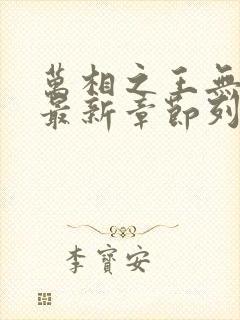 萬相之王無
最新章節列
李寶安